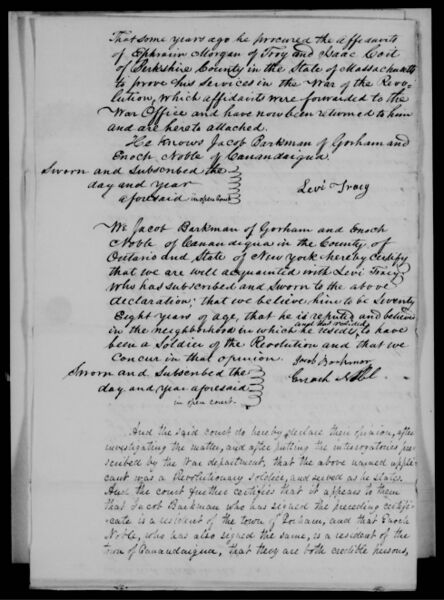 That some years ago he procured the affidavits
of Ephraim Morgan of Troy and Isaac Coit
of Berkshire County in the State of Massachusetts
to prove his services in the War of the Revo-
lution, which affidavits were forwarded to the
War Office and have now been returned to him
and are hereto attached.
He knows Jacob Barkman of Gorham and
Enoch Noble of Canandaigua.
Sworn and Subscribed the
day and year
aforesaid in open court
Levi Tracy
We Jacob Barkman of Gorham and Enoch
Noble of Canandaigua in the County of
Ontario and State of New York hereby certify
that we are well acquainted with Levi Tracy
who has subscribed and Sworn to the above
declaration; that we believe him to be Seventy
Eight years of age, that he is reputed and believed
in the neighborhood in which he resides and has resided to have
been a Soldier of the Revolution and that we
Concur in that opinion.
Jacob Barkman
Sworn and Subscribed the
day and year aforesaid
in open court
Enoch Noble
And the said court do hereby declare their opinion, after
investigating the matter, and after putting the interrogatories pre-
scribed by the War department, that the above named appli-
cant was a Revolutionary soldier, and served as he states.
And the court further certifies that it appears to them
that Jacob Barkman who has signed the preceding certifi-
cate is a resident of the town of Gorham, and that Enoch
Noble, who has also signed the same, is a resident of the
town of Canandaigua, that they are both credible persons,